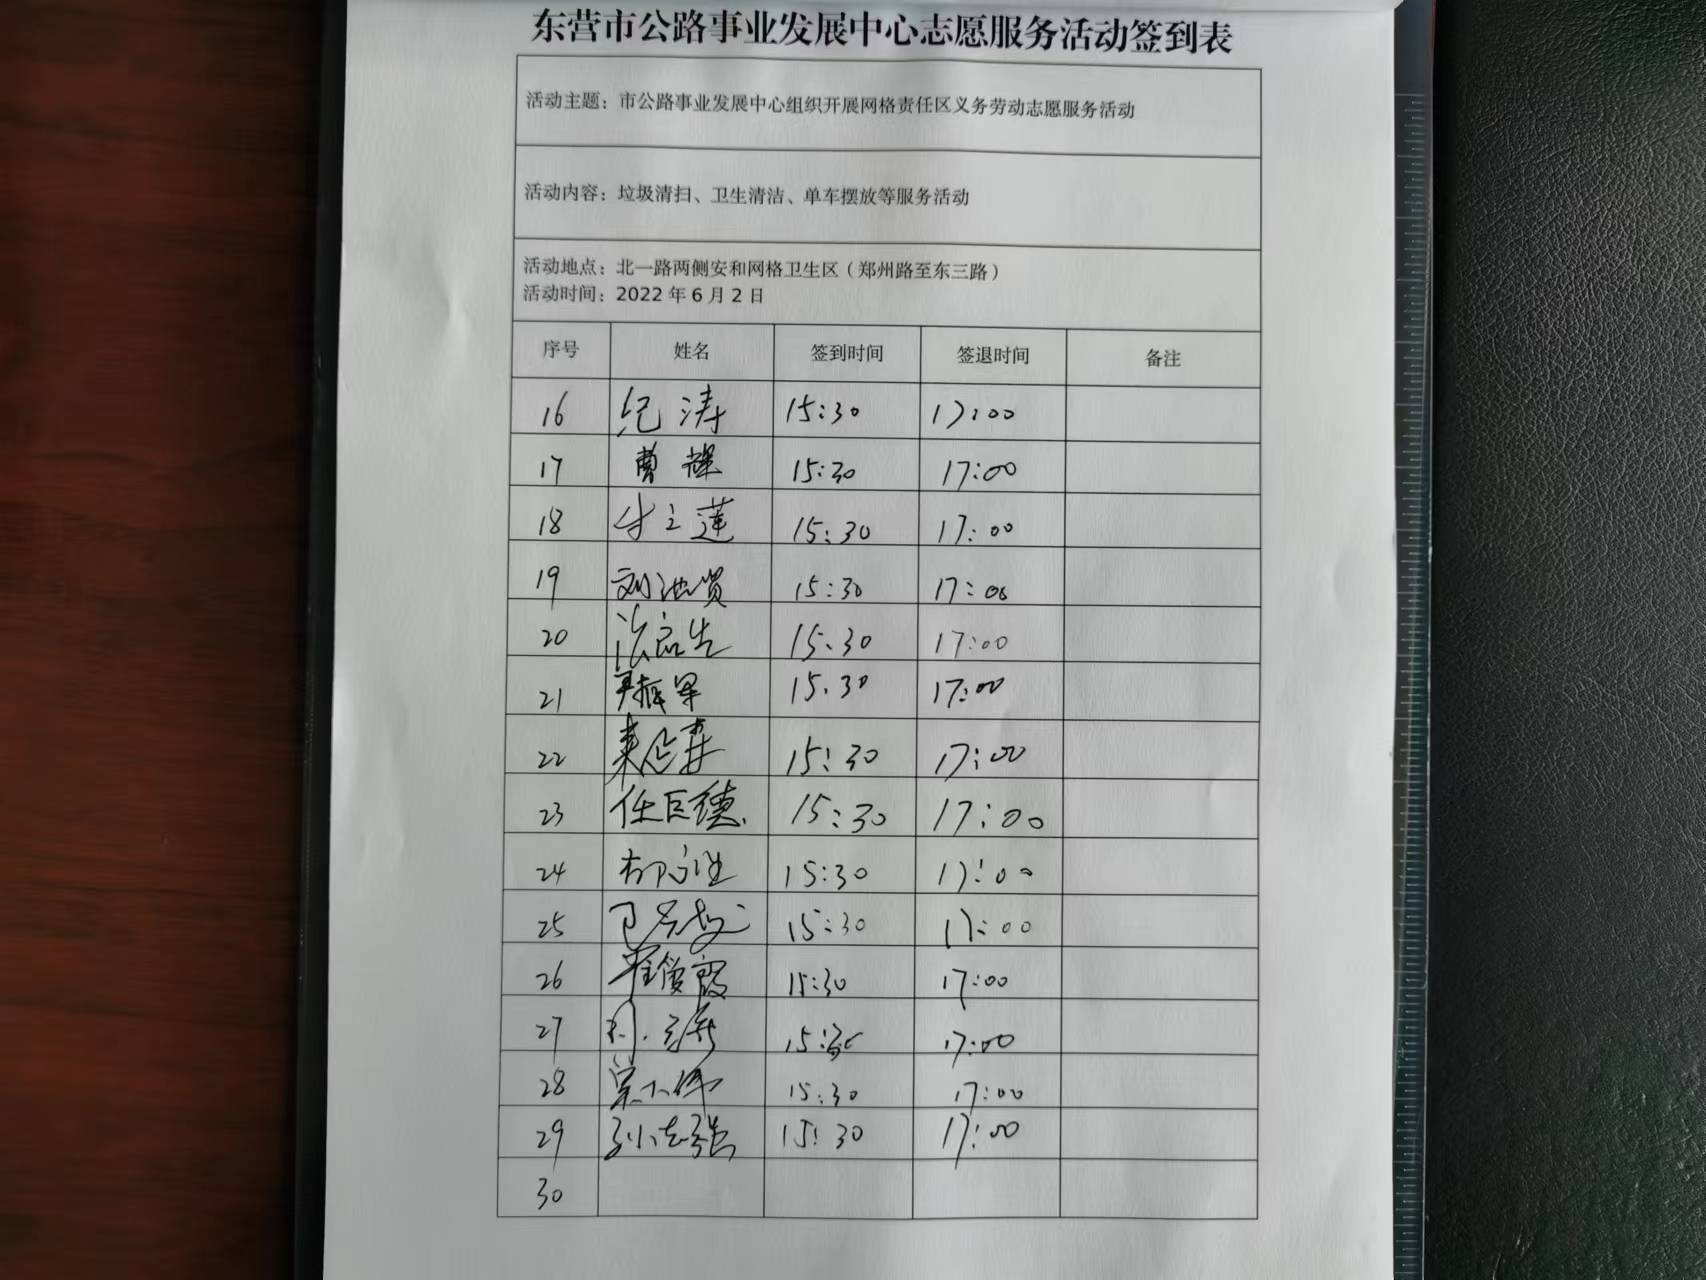 东营市公路事业发展中心志愿服务活动签到表
活动主题：市公路事业发展中心组织开展网格责任区义务劳动志愿服务活动
活动内容：垃圾清扫、卫生清洁、单车摆放等服务活动
活动地点：北一路两侧安和网格卫生区（郑州路至东三路）
活动时间：2022年6月2日
序号 姓名 签到时间 签退时间 备注
16 纪涛 15:30 17:00
17 曹辉 15:30 17:00
18 15:30 17:00
19 15:30 17:00
20 15:30 17:00
21 15:30 17:00
22 15:30 17:00
23 任巨德 15:30 17:00
24 15:30 17:00
25 15:30 17:00
26 崔俊霞 15:30 17:00
27 15:30 17:00
28 15:30 17:00
29 孙志强 15:30 17:00
30